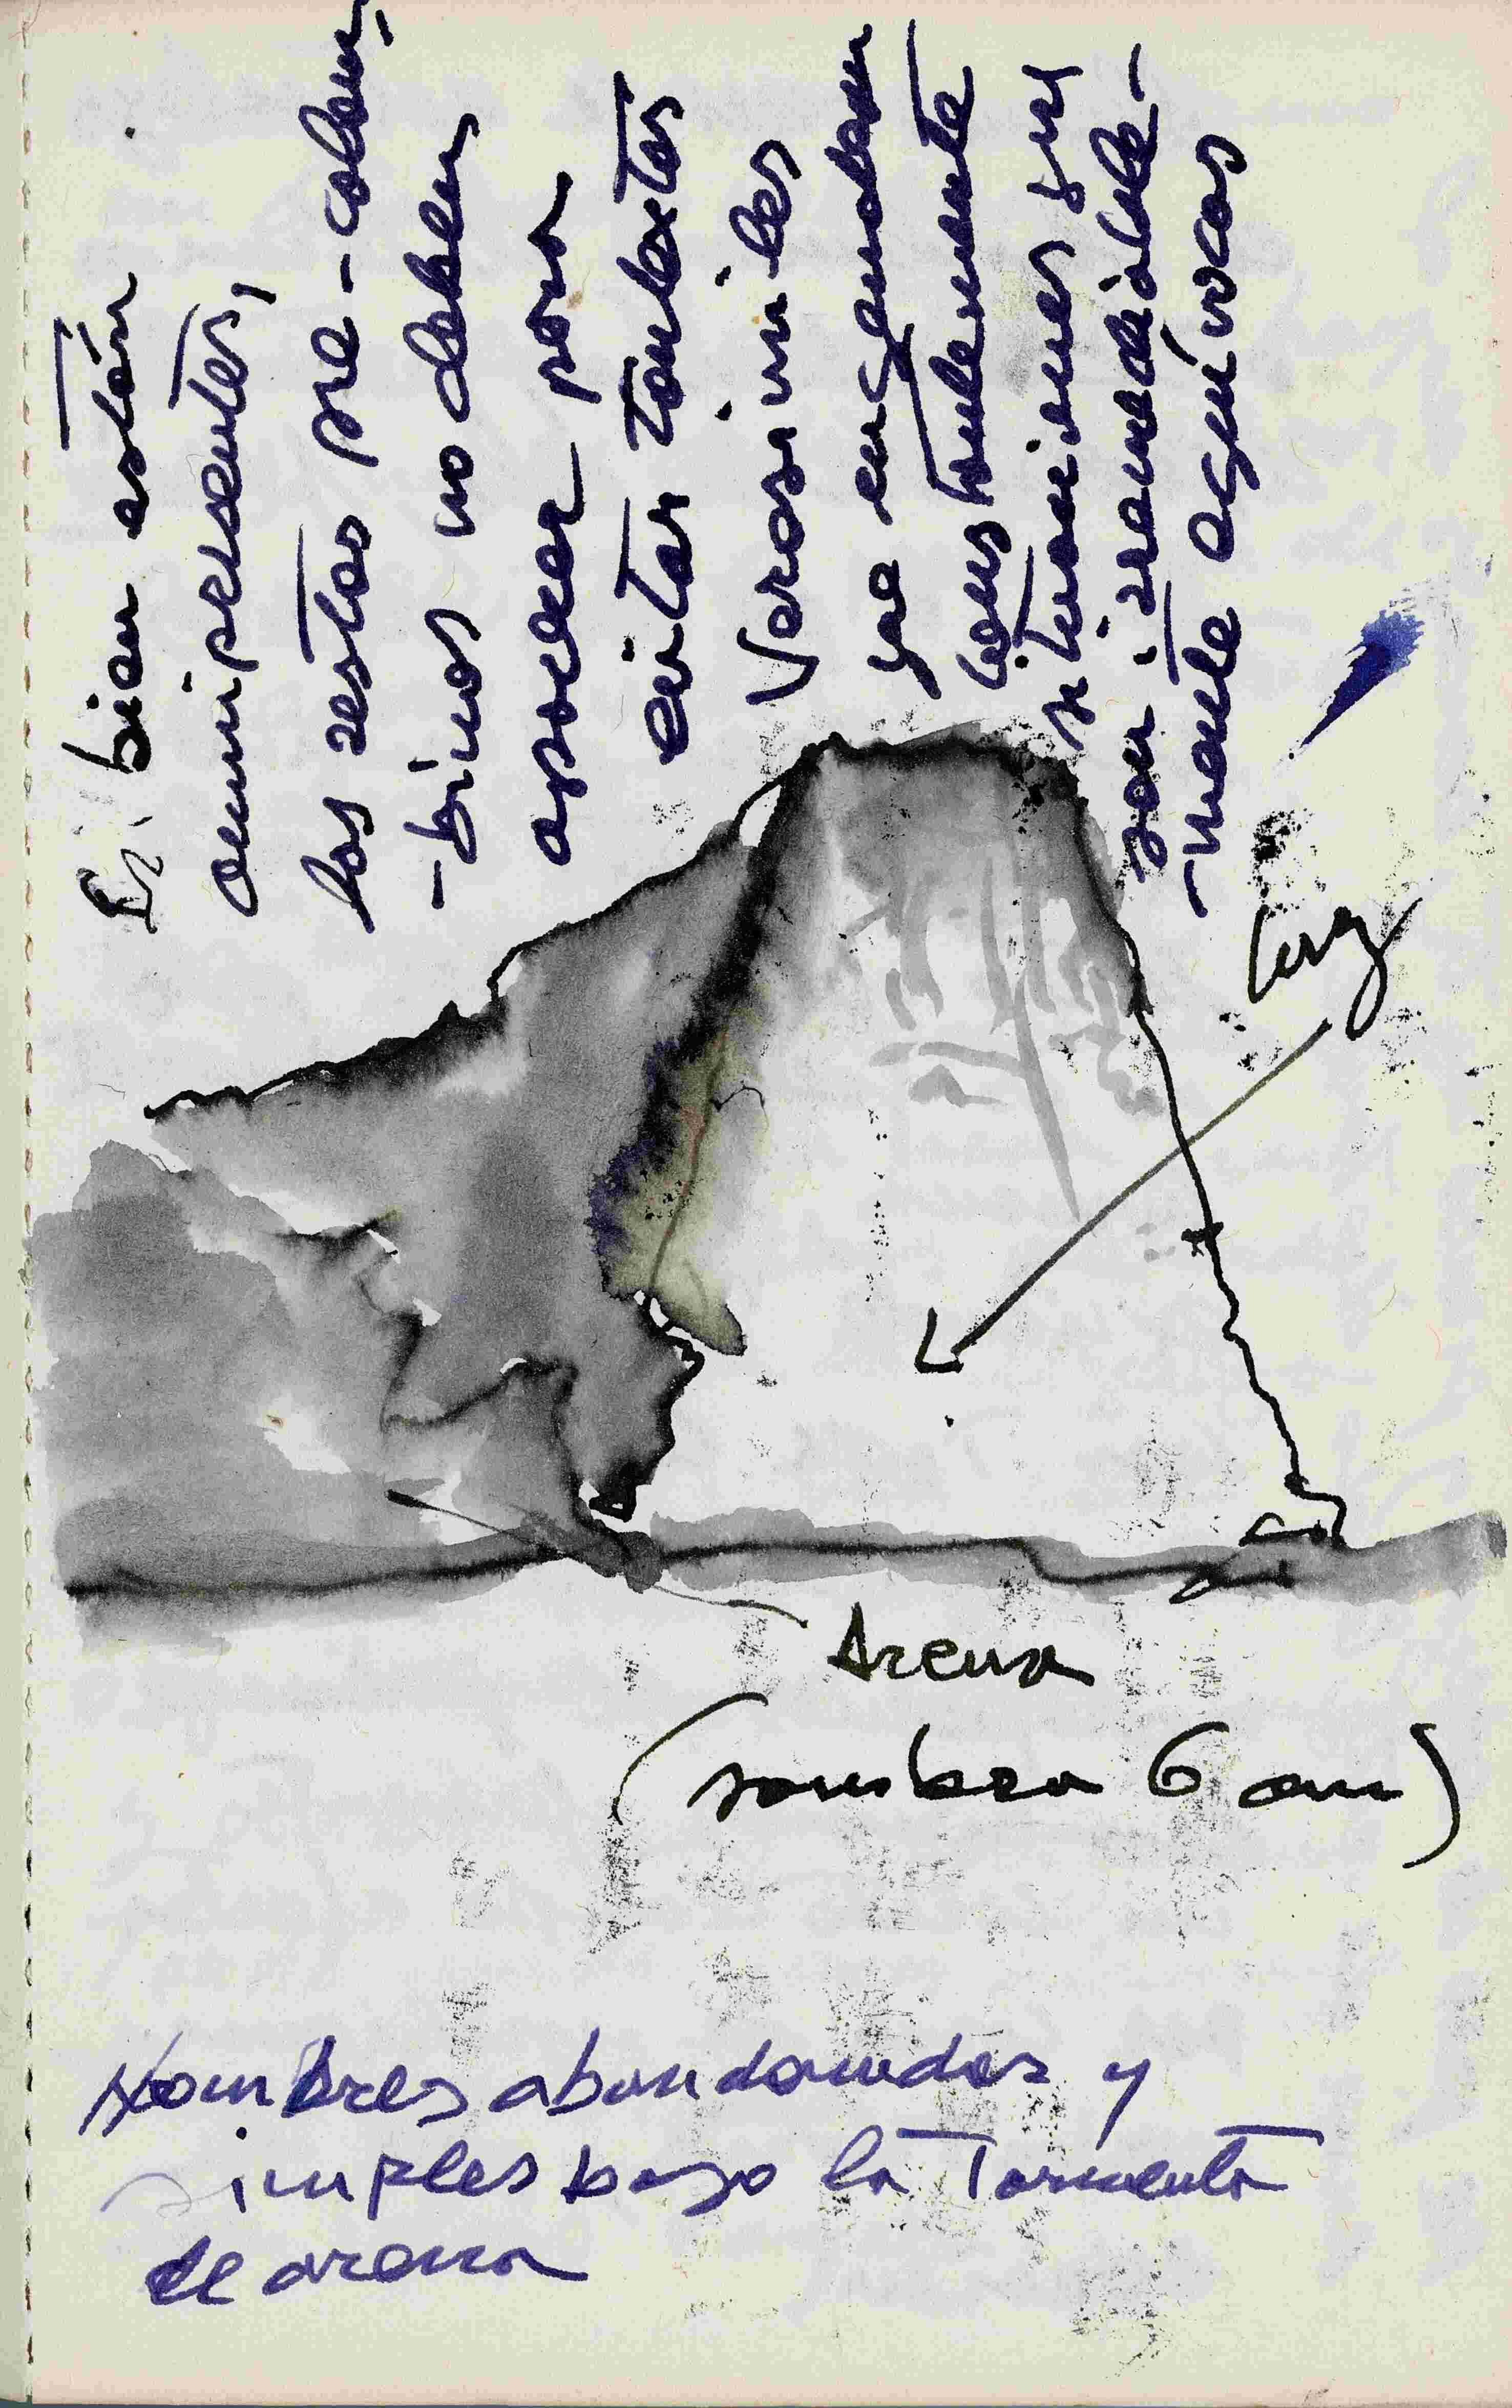 Si bien están
omnipresentes,
los restos pre-colom
-binos no deben
aparecer para
evitar contextos
Verosímiles
que engendran
constantemente
situaciones que
son irremediable-
-mente equívocas
luz
Arena
(sombra 6 am)
Hombres abandonados y
simples bajo la Tormenta
de arena